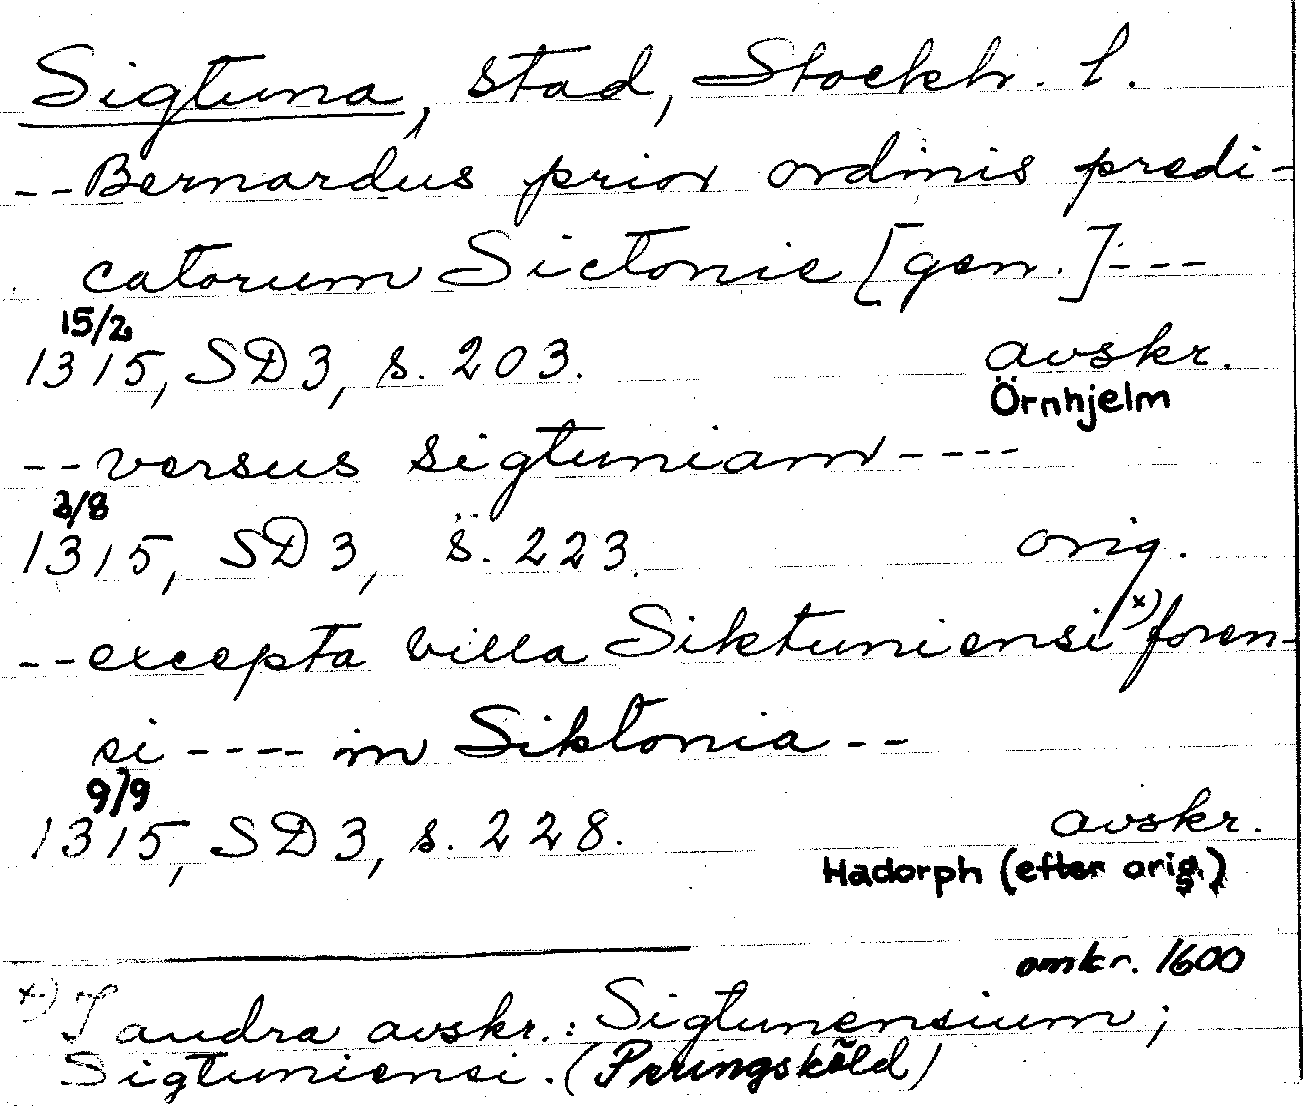 Sigtuna, stad, Stockh. l.
--Bernardus prior ordinis predi-
catorum Sictonie [gen.]---
15/2
1315, SD 3, s. 203. avskr.
Örnhjelm
--versus sigtuniam----
3/8
1315, SD 3, s. 223. orig.
--excepta villa Siktuniensi x) foren-
si ---- in Siktonia --
9/9
1315, SD 3, s. 228. avskr.
Hadorph (efter orig.)
omkr. 1600
x) I andra avskr.: Sigtunensium;
Sigtuniensi. (Peringsköld)